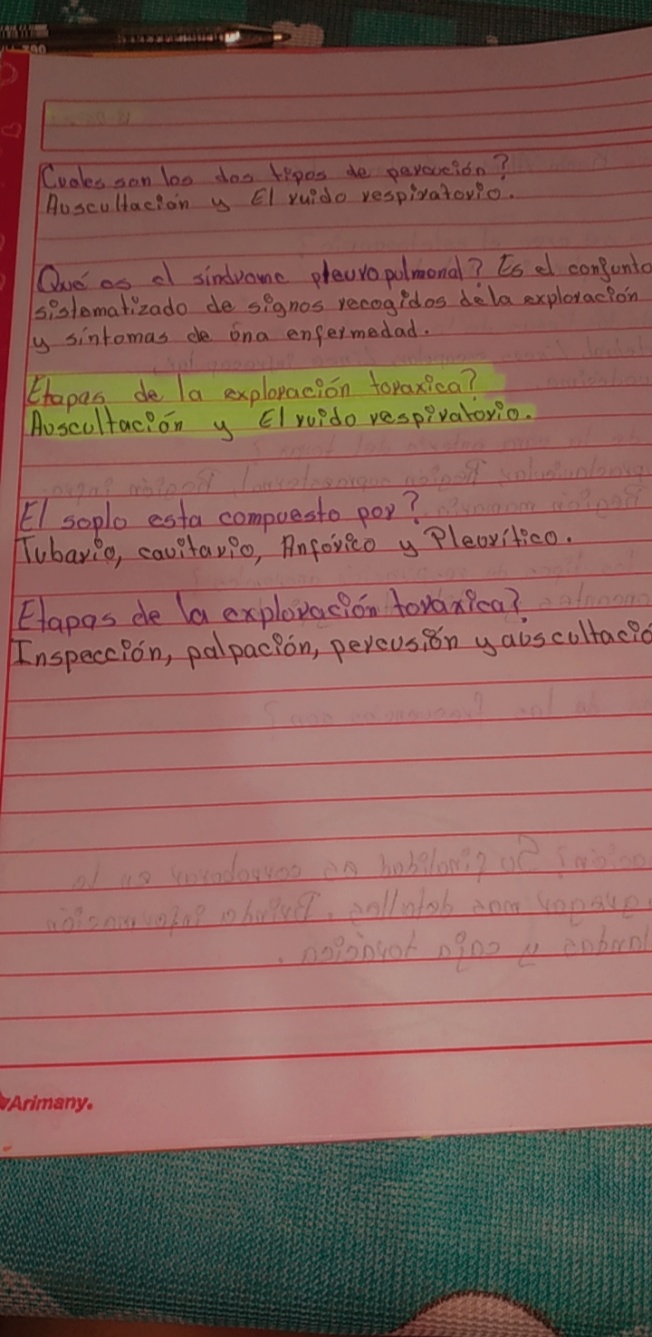 Cuales son los dos tipos de percución?
Auscultación y El ruido respiratorio.
Qué es el síndrome pleuropulmonal? Es el conjunto
sistematizado de signos recogidos de la exploración
y síntomas de una enfermedad.
Etapas de la exploración toraxica?
Auscultación y El ruido respiratorio.
El soplo esta compuesto por?
Tubario, cavitario, Anforico y Pleurítico.
Etapas de la exploración toraxica?
Inspección, palpación, percusión y auscultació
Arimany.